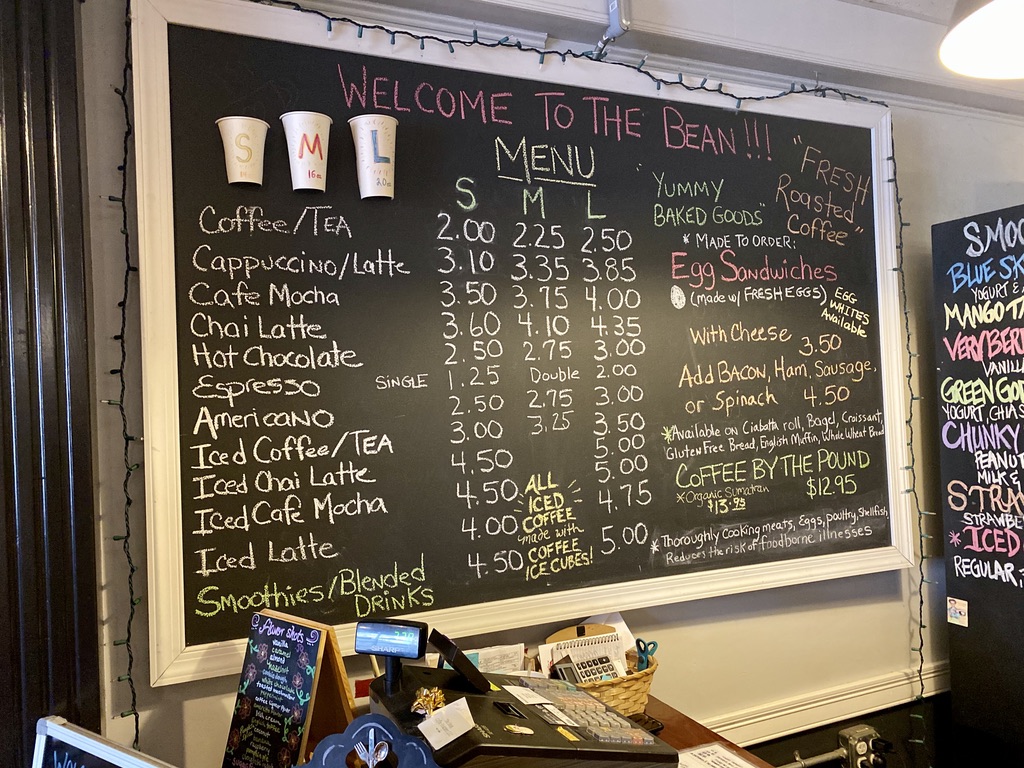 WELCOME TO THE BEAN!!!
S M L
16oz
20oz
MENU
S M L
Coffee/TEA 2.00 2.25 2.50
Cappuccino/Latte 3.10 3.35 3.85
Cafe Mocha 3.50 3.75 4.00
Chai Latte 3.60 4.10 4.35
Hot Chocolate 2.50 2.75 3.00
Espresso SINGLE 1.25 Double 2.00
Americano 2.50 2.75 3.00
Iced Coffee/TEA 3.00 3.25 3.50
Iced Chai Latte 4.50 5.00
Iced Cafe Mocha 4.50 5.00
Iced Latte 4.00 4.75
Smoothies/Blended
DRINKS 4.50 5.00
ALL
ICED
COFFEE
made with
COFFEE
ICE CUBES!
"YUMMY
BAKED GOODS"
"FRESH
Roasted
Coffee"
* MADE TO ORDER:
Egg Sandwiches
(made w/ FRESH EGGS)
EGG
WHITES
Available
With Cheese 3.50
Add BACON, Ham, Sausage,
or Spinach 4.50
*Available on Ciabatta roll, Bagel, Croissant,
Gluten Free Bread, English Muffin, Whole Wheat Bread
COFFEE BY THE POUND
$12.95
*Organic Sumatran
$13.95
*Thoroughly cooking meats, Eggs, poultry, Shellfish,
Reduces the risk of foodborne illnesses
SMOO
BLUE SK
YOGURT &
MANGO-TA
VERY BERR
VANILL
GREEN GOD
YOGURT, CHIA S
CHUNKY
PEANUT
MILK &
STRA
STRAWBE
*ICED
REGULAR,
Flavor Shots
vanilla
caramel
almond
hazelnut
SHARP